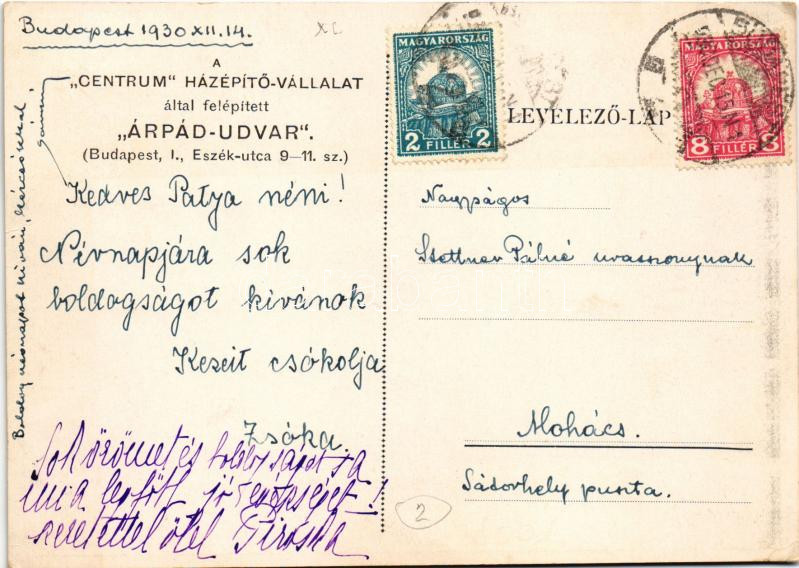 Budapest 1930 XII. 14.
XC
A
„CENTRUM" HÁZÉPÍTŐ-VÁLLALAT
által felépített
„ÁRPÁD-UDVAR".
(Budapest, I., Eszék-utca 9—11. sz.)
Kedves Patya néni!
Névnapjára sok
boldogságot kivánok
Kezeit csókolja
Zsóka
Sok örömet és boldogságot s a
mi a legfőbb jó egészséget!
szeretettel ölel Piroska
Boldog névnapot kíván,
MAGYARORSZÁG
2 FILLÉR 2
LEVELEZŐ-LAP
MAGYARORSZÁG
8 FILLÉR 8
Nagyságos
Stettner Pálné urasszonynak
Mohács.
Sádorhely puszta.
2